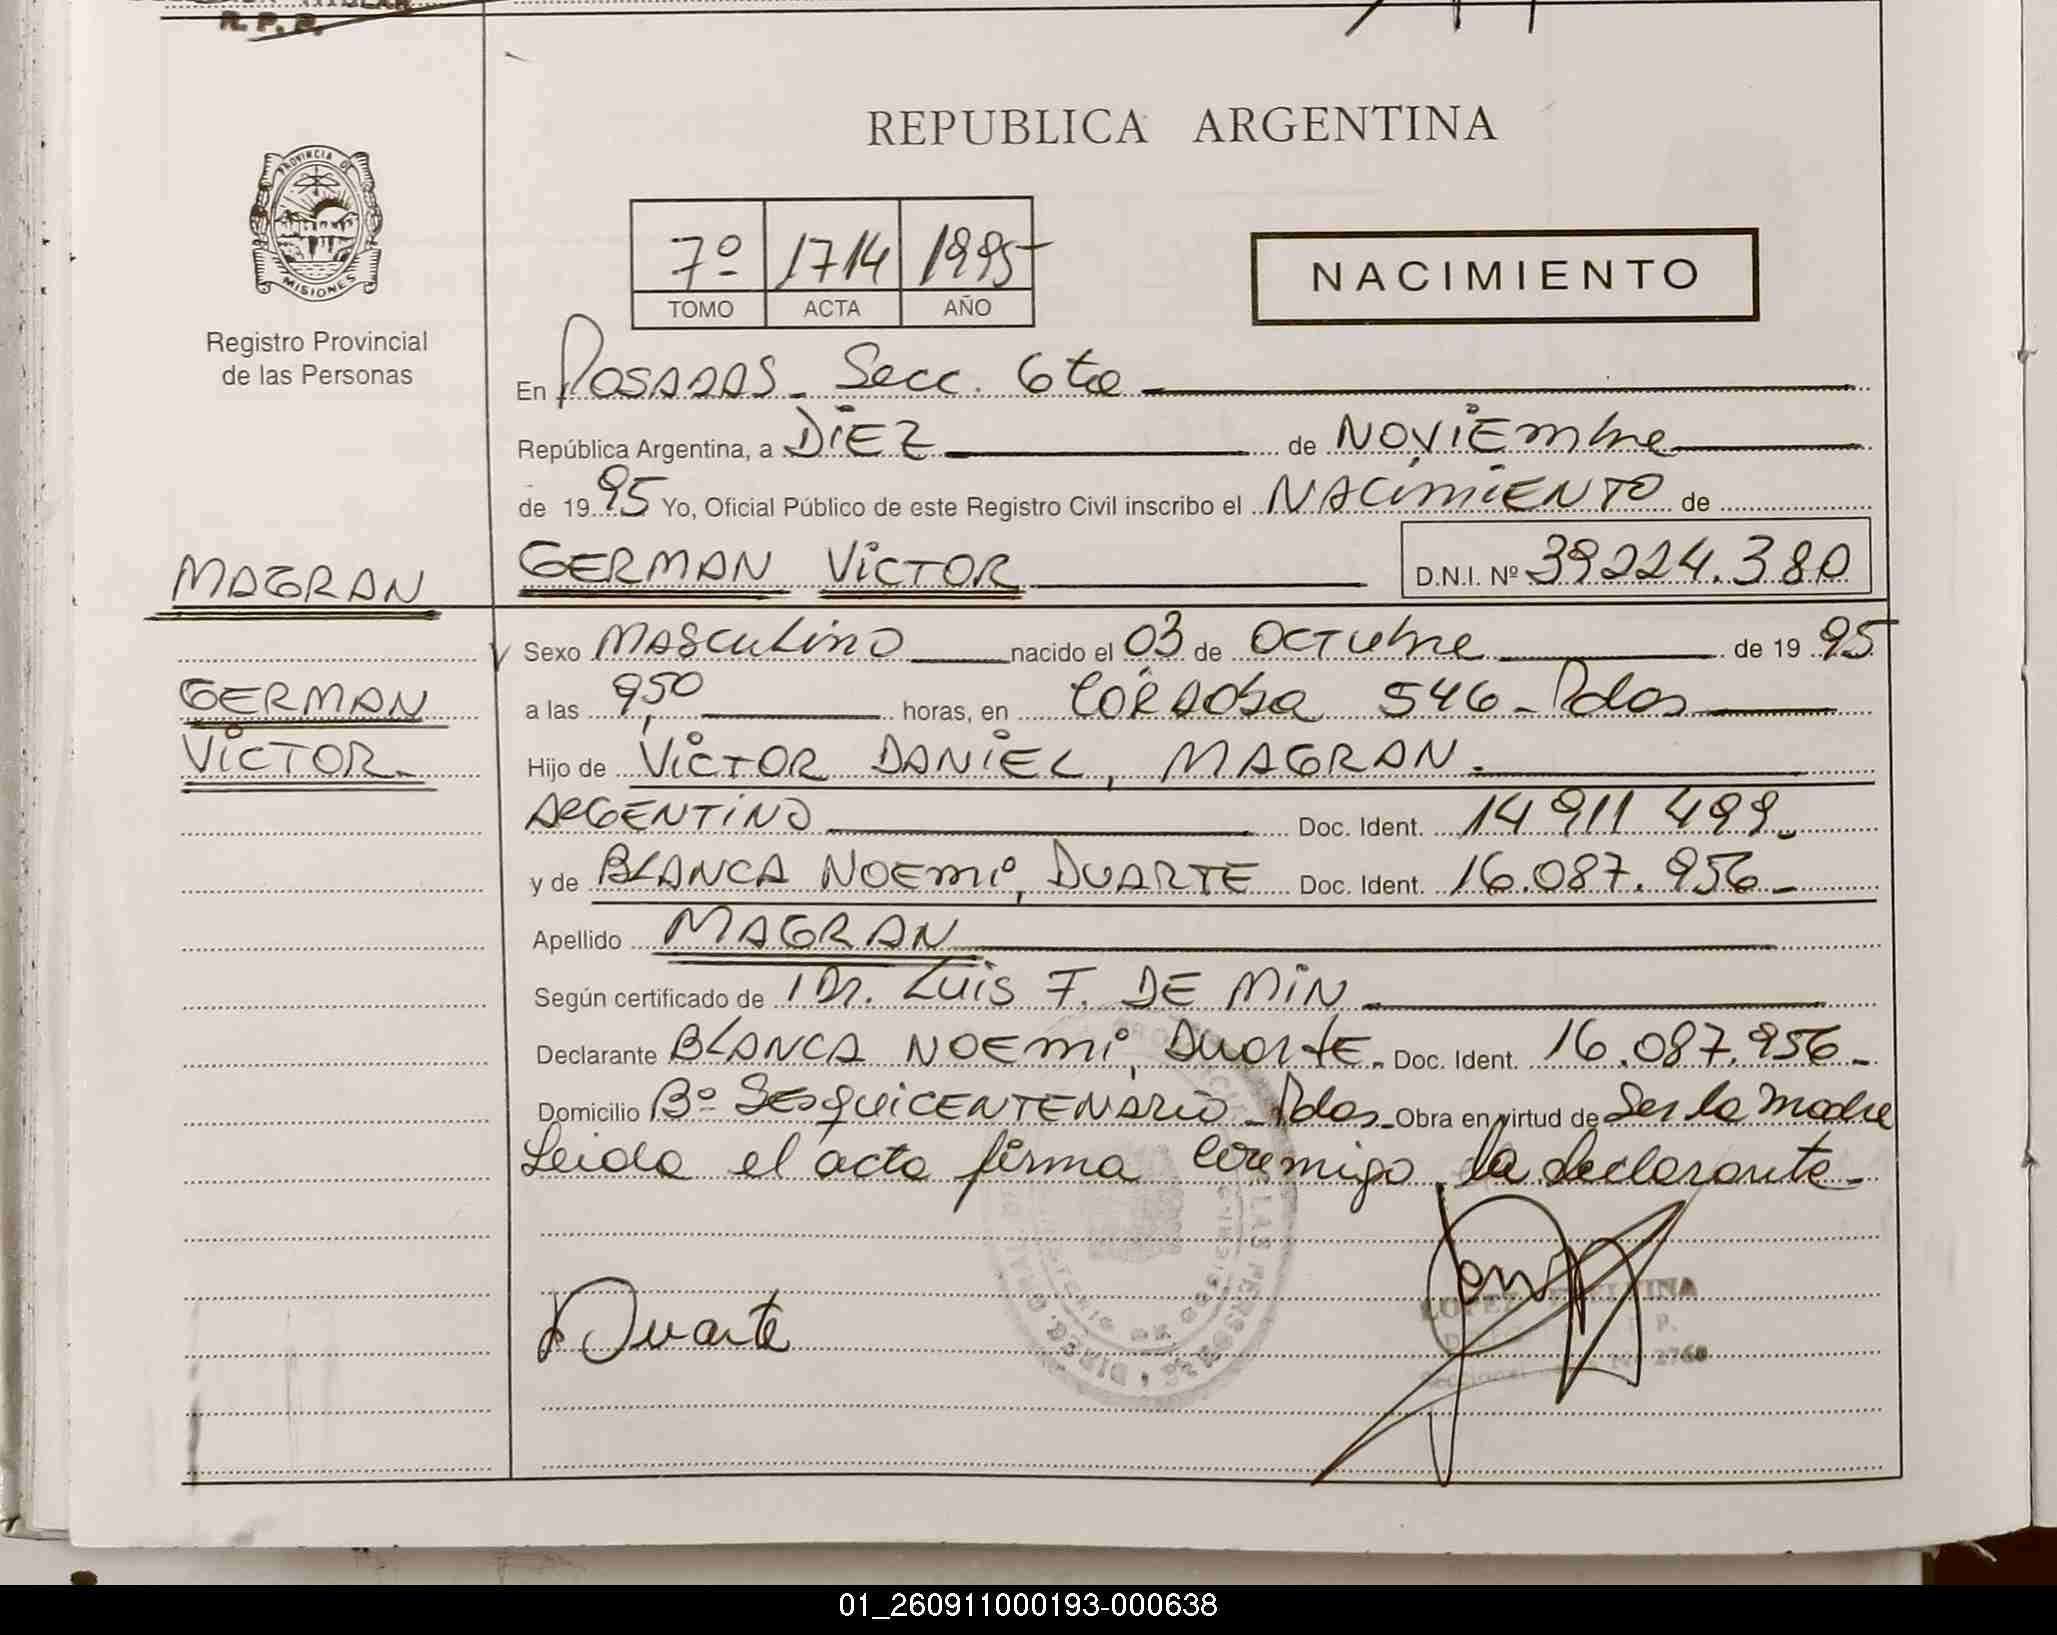 R. P. P.
REPUBLICA ARGENTINA
PROVINCIA DE
MISIONES
Registro Provincial
de las Personas
7º 1714 1995
TOMO ACTA AÑO
NACIMIENTO
En POSADAS - Secc. 6ta
República Argentina, a DIEZ de NOVIEmbre
de 19 95 Yo, Oficial Público de este Registro Civil inscribo el NACIMIENTO de
MAGRAN
GERMAN VICTOR D.N.I. Nº 39224.380
Sexo MASCULINO nacido el 03 de OCTUbre de 19 95
GERMAN
a las 9,50 horas, en CÓRDOba 546 - Pdas
VICTOR.-
Hijo de VICTOR DANIEL, MAGRAN.
ARGENTINO Doc. Ident. 14 911 499.-
y de BLANCA NOEMI, DUARTE Doc. Ident. 16.087.956-
Apellido MAGRAN
Según certificado de Dr. LUIS F. DE MIN
Declarante BLANCA NOEMI, DUARTE. Doc. Ident. 16.087.956-
Domicilio Bº SESQUICENTENARIO - Pdas.- Obra en virtud de Ser la madre
Leida el acta firma conmigo la declarante-
Duarte
LOPEZ
2768
01_260911000193-000638